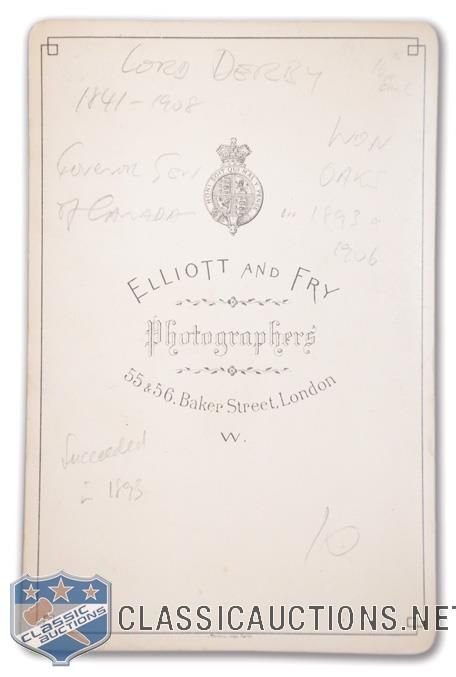 LORD DERBY
1841-1908
WON
OAKS
in 1893 &
1906
GOVERNOR GEN
of CANADA
HONI SOIT QUI MAL Y PENSE
ELLIOTT AND FRY
Photographers
55 & 56, Baker Street, London
W.
Succeeded
in 1893
10
CLASSIC
AUCTIONS
CLASSICAUCTIONS.NET